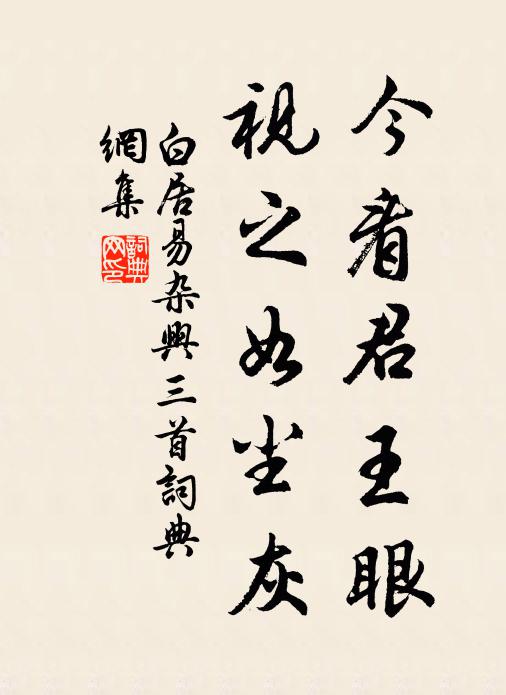 今看君王眼
視之如尘灰
白居易杂興三首詞典
網集
詞典
网印